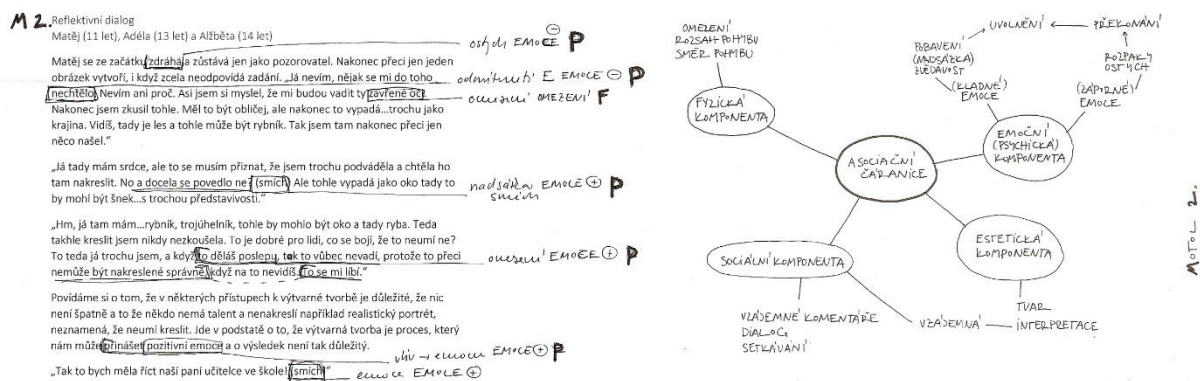 M 2.
Reflektivní dialog
Matěj (11 let), Adéla (13 let) a Alžběta (14 let)
Matěj se ze začátku zdráhá a zůstává jen jako pozorovatel. Nakonec přeci jen jeden
obrázek vytvoří, i když zcela neodpovídá zadání. „Já nevím, nějak se mi do toho
nechtělo. Nevím ani proč. Asi jsem si myslel, že mi budou vadit ty zavřené oči.
Nakonec jsem zkusil tohle. Měl to být obličej, ale nakonec to vypadá...trochu jako
krajina. Vidíš, tady je les a tohle může být rybník. Tak jsem tam nakonec přeci jen
něco našel."
„Já tady mám srdce, ale to se musím přiznat, že jsem trochu podváděla a chtěla ho
tam nakreslit. No a docela se povedlo ne? (smích) Ale tohle vypadá jako oko tady to
by mohl být šnek...s trochou představivosti."
„Hm, já tam mám...rybník, trojúhelník, tohle by mohlo být oko a tady ryba. Teda
takhle kreslit jsem nikdy nezkoušela. To je dobré pro lidi, co se bojí, že to neumí ne?
To teda já trochu jsem, a když to děláš poslepu, tak to vůbec nevadí, protože to přeci
nemůže být nakreslené správně, když na to nevidíš. To se mi líbí."
Povídáme si o tom, že v některých přístupech k výtvarné tvorbě je důležité, že nic
není špatně a to že někdo nemá talent a nenakreslí například realistický portrét,
neznamená, že neumí kreslit. Jde v podstatě o to, že výtvarná tvorba je proces, který
nám může přinášet pozitivní emoce a o výsledek není tak důležitý.
„Tak to bych měla říct naší paní učitelce ve škole! (smích)"
ostych EMOCE ⊖ P
odmítnutí E EMOCE ⊖ P
omezení OMEZENÍ F
nadsázka EMOCE ⊕ P
smích
EMOCE ⊕ P
vliv → emoce EMOCE ⊕ P
emoce EMOCE ⊕
OMEZENÍ
ROZSAH POHYBU
SMĚR POHYBU
FYZICKÁ
KOMPONENTA
UVOLNĚNÍ ← PŘEKONÁNÍ
POBAVENÍ
(NADSÁZKA)
ZVĚDAVOST
(KLADNÉ)
EMOCE
ROZPAKY
OSTYCH
(ZÁPORNÉ)
EMOCE
EMOČNÍ
(PSYCHICKÁ)
KOMPONENTA
ASOCIAČNÍ
ČÁRANICE
SOCIÁLNÍ KOMPONENTA
VZÁJEMNÉ KOMENTÁŘE
DIALOG
SETKÁVÁNÍ
ESTETICKÁ
KOMPONENTA
TVAR
VZÁJEMNÁ — INTERPRETACE
MOTOL 2.